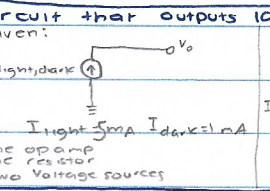 rcuit thar outputs 10
iven:
Vo
ight, dark
I
Ilight = 5mA Idark = 1 mA
ne op amp
ne resistor
wo voltage sources